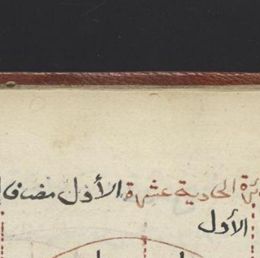 ئرة الحادية عشرة الأول مضاف
الأول